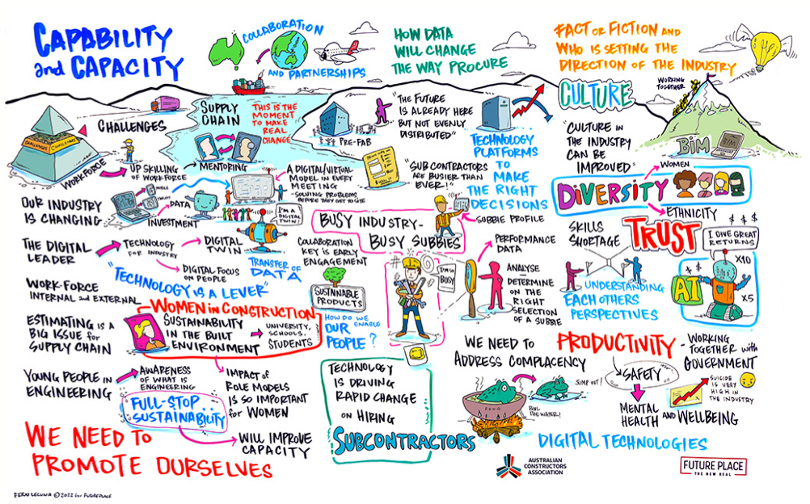 CAPABILITY
and CAPACITY
COLLABORATION
AND PARTNERSHIPS
HOW DATA
WILL CHANGE
THE WAY PROCURE
FACT OR FICTION AND
WHO IS SETTING THE
DIRECTION OF THE INDUSTRY
CHALLENGES
CHALLENGES
WORKFORCE
UP SKILLING
OF WORKFORCE
SUPPLY
CHAIN
THIS IS THE
MOMENT
TO MAKE
REAL
CHANGE
MENTORING
PRE-FAB
"THE FUTURE
IS ALREADY HERE
BUT NOT EVENLY
DISTRIBUTED"
TECHNOLOGY
PLATFORMS
TO
MAKE
THE RIGHT
DECISIONS
CULTURE
WORKING
TOGETHER
"CULTURE IN
THE INDUSTRY
CAN BE
IMPROVED"
BIM
OUR INDUSTRY
IS CHANGING
DATA
INVESTMENT
A DIGITAL/VIRTUAL
MODEL IN EVERY
MEETING
- SOLVING PROBLEMS
BEFORE THEY GET TO SITE
I'M A
DIGITAL
TWIN!
"SUB CONTRACTORS
ARE BUSIER THAN
EVER!"
SUBBIE PROFILE
DIVERSITY
WOMEN
ETHNICITY
THE DIGITAL
LEADER
TECHNOLOGY
FOR INDUSTRY
DIGITAL
TWIN
DIGITAL FOCUS
ON PEOPLE
TRANSFER OF
DATA
COLLABORATION
KEY IS EARLY
ENGAGEMENT
BUSY INDUSTRY-
BUSY SUBBIES
I'M SO
BUSY
PERFORMANCE
DATA
ANALYSE
DETERMINE
ON THE
RIGHT
SELECTION
OF A SUBBIE
SKILLS
SHORTAGE
TRUST
$ $ $
I GIVE GREAT
RETURNS
AI
X10
X5
UNDERSTANDING
EACH OTHERS
PERSPECTIVES
"TECHNOLOGY IS A LEVER"
WORK-FORCE
INTERNAL and EXTERNAL
SUSTAINABLE
PRODUCTS
WOMEN IN CONSTRUCTION
SUSTAINABILITY
IN THE BUILT
ENVIRONMENT
UNIVERSITY,
SCHOOLS,
STUDENTS
HOW DO WE
ENABLE
OUR
PEOPLE?
ESTIMATING IS A
BIG ISSUE FOR
SUPPLY CHAIN
WE NEED TO
ADDRESS COMPLACENCY
JUMP OUT!
BOIL
THE WATER!
PRODUCTIVITY
- WORKING
TOGETHER with
GOVERNMENT
SAFETY
MENTAL
HEALTH AND WELLBEING
SUICIDE IS VERY
HIGH IN
THE INDUSTRY
YOUNG PEOPLE IN
ENGINEERING
AWARENESS
OF WHAT IS
ENGINEERING
IMPACT OF
ROLE MODELS
IS SO IMPORTANT
FOR WOMEN
FULL-STOP
SUSTAINABILITY
WILL IMPROVE
CAPACITY
TECHNOLOGY
IS DRIVING
RAPID CHANGE
ON HIRING
SUBCONTRACTORS
DIGITAL TECHNOLOGIES
WE NEED TO
PROMOTE OURSELVES
AUSTRALIAN
CONSTRUCTORS
ASSOCIATION
FUTURE PLACE
THE NEW REAL